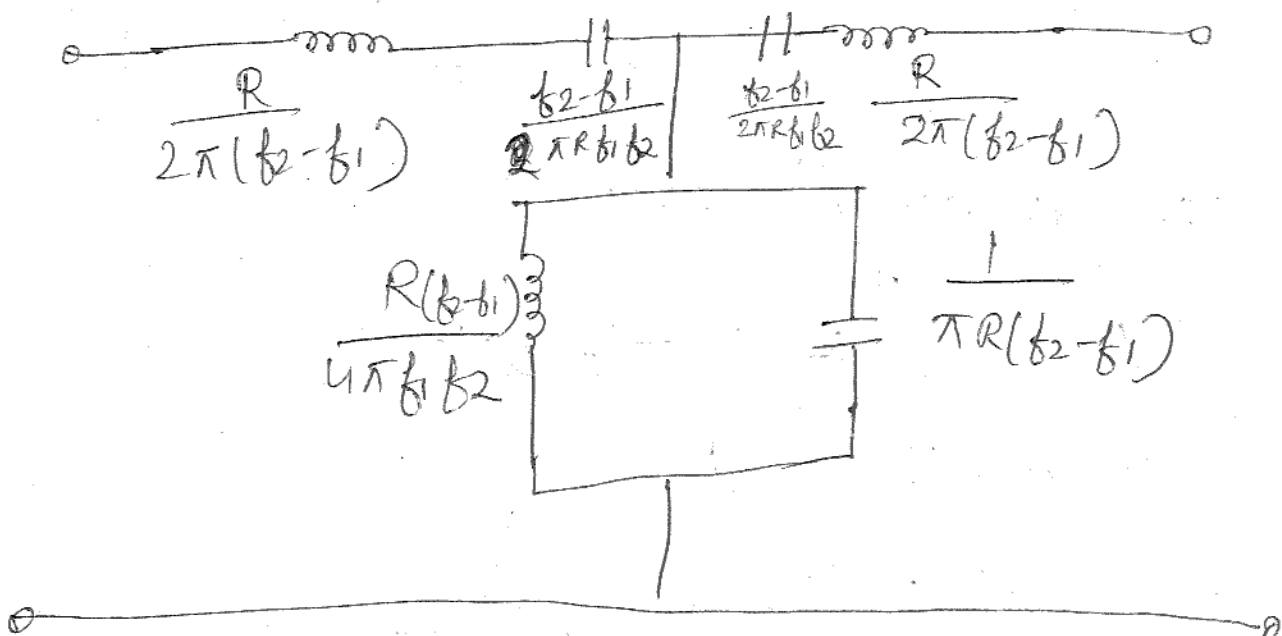 R / 2π(f2-f1)
f2-f1 / 2πRf1f2
f2-f1 / 2πRf1f2
R / 2π(f2-f1)
R(f2-f1) / 4πf1f2
1 / πR(f2-f1)